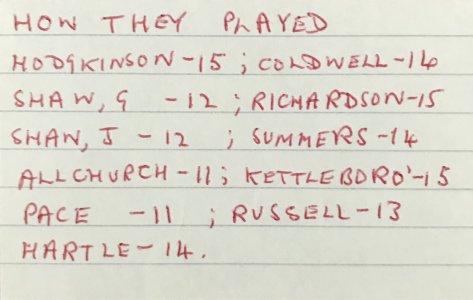 HOW THEY PLAYED
HODGKINSON-15; COLDWELL-14
SHAW, G -12; RICHARDSON-15
SHAW, J - 12 ; SUMMERS-14
ALLCHURCH-11; KETTLEBORO'-15
PACE -11 ; RUSSELL-13
HARTLE-14.